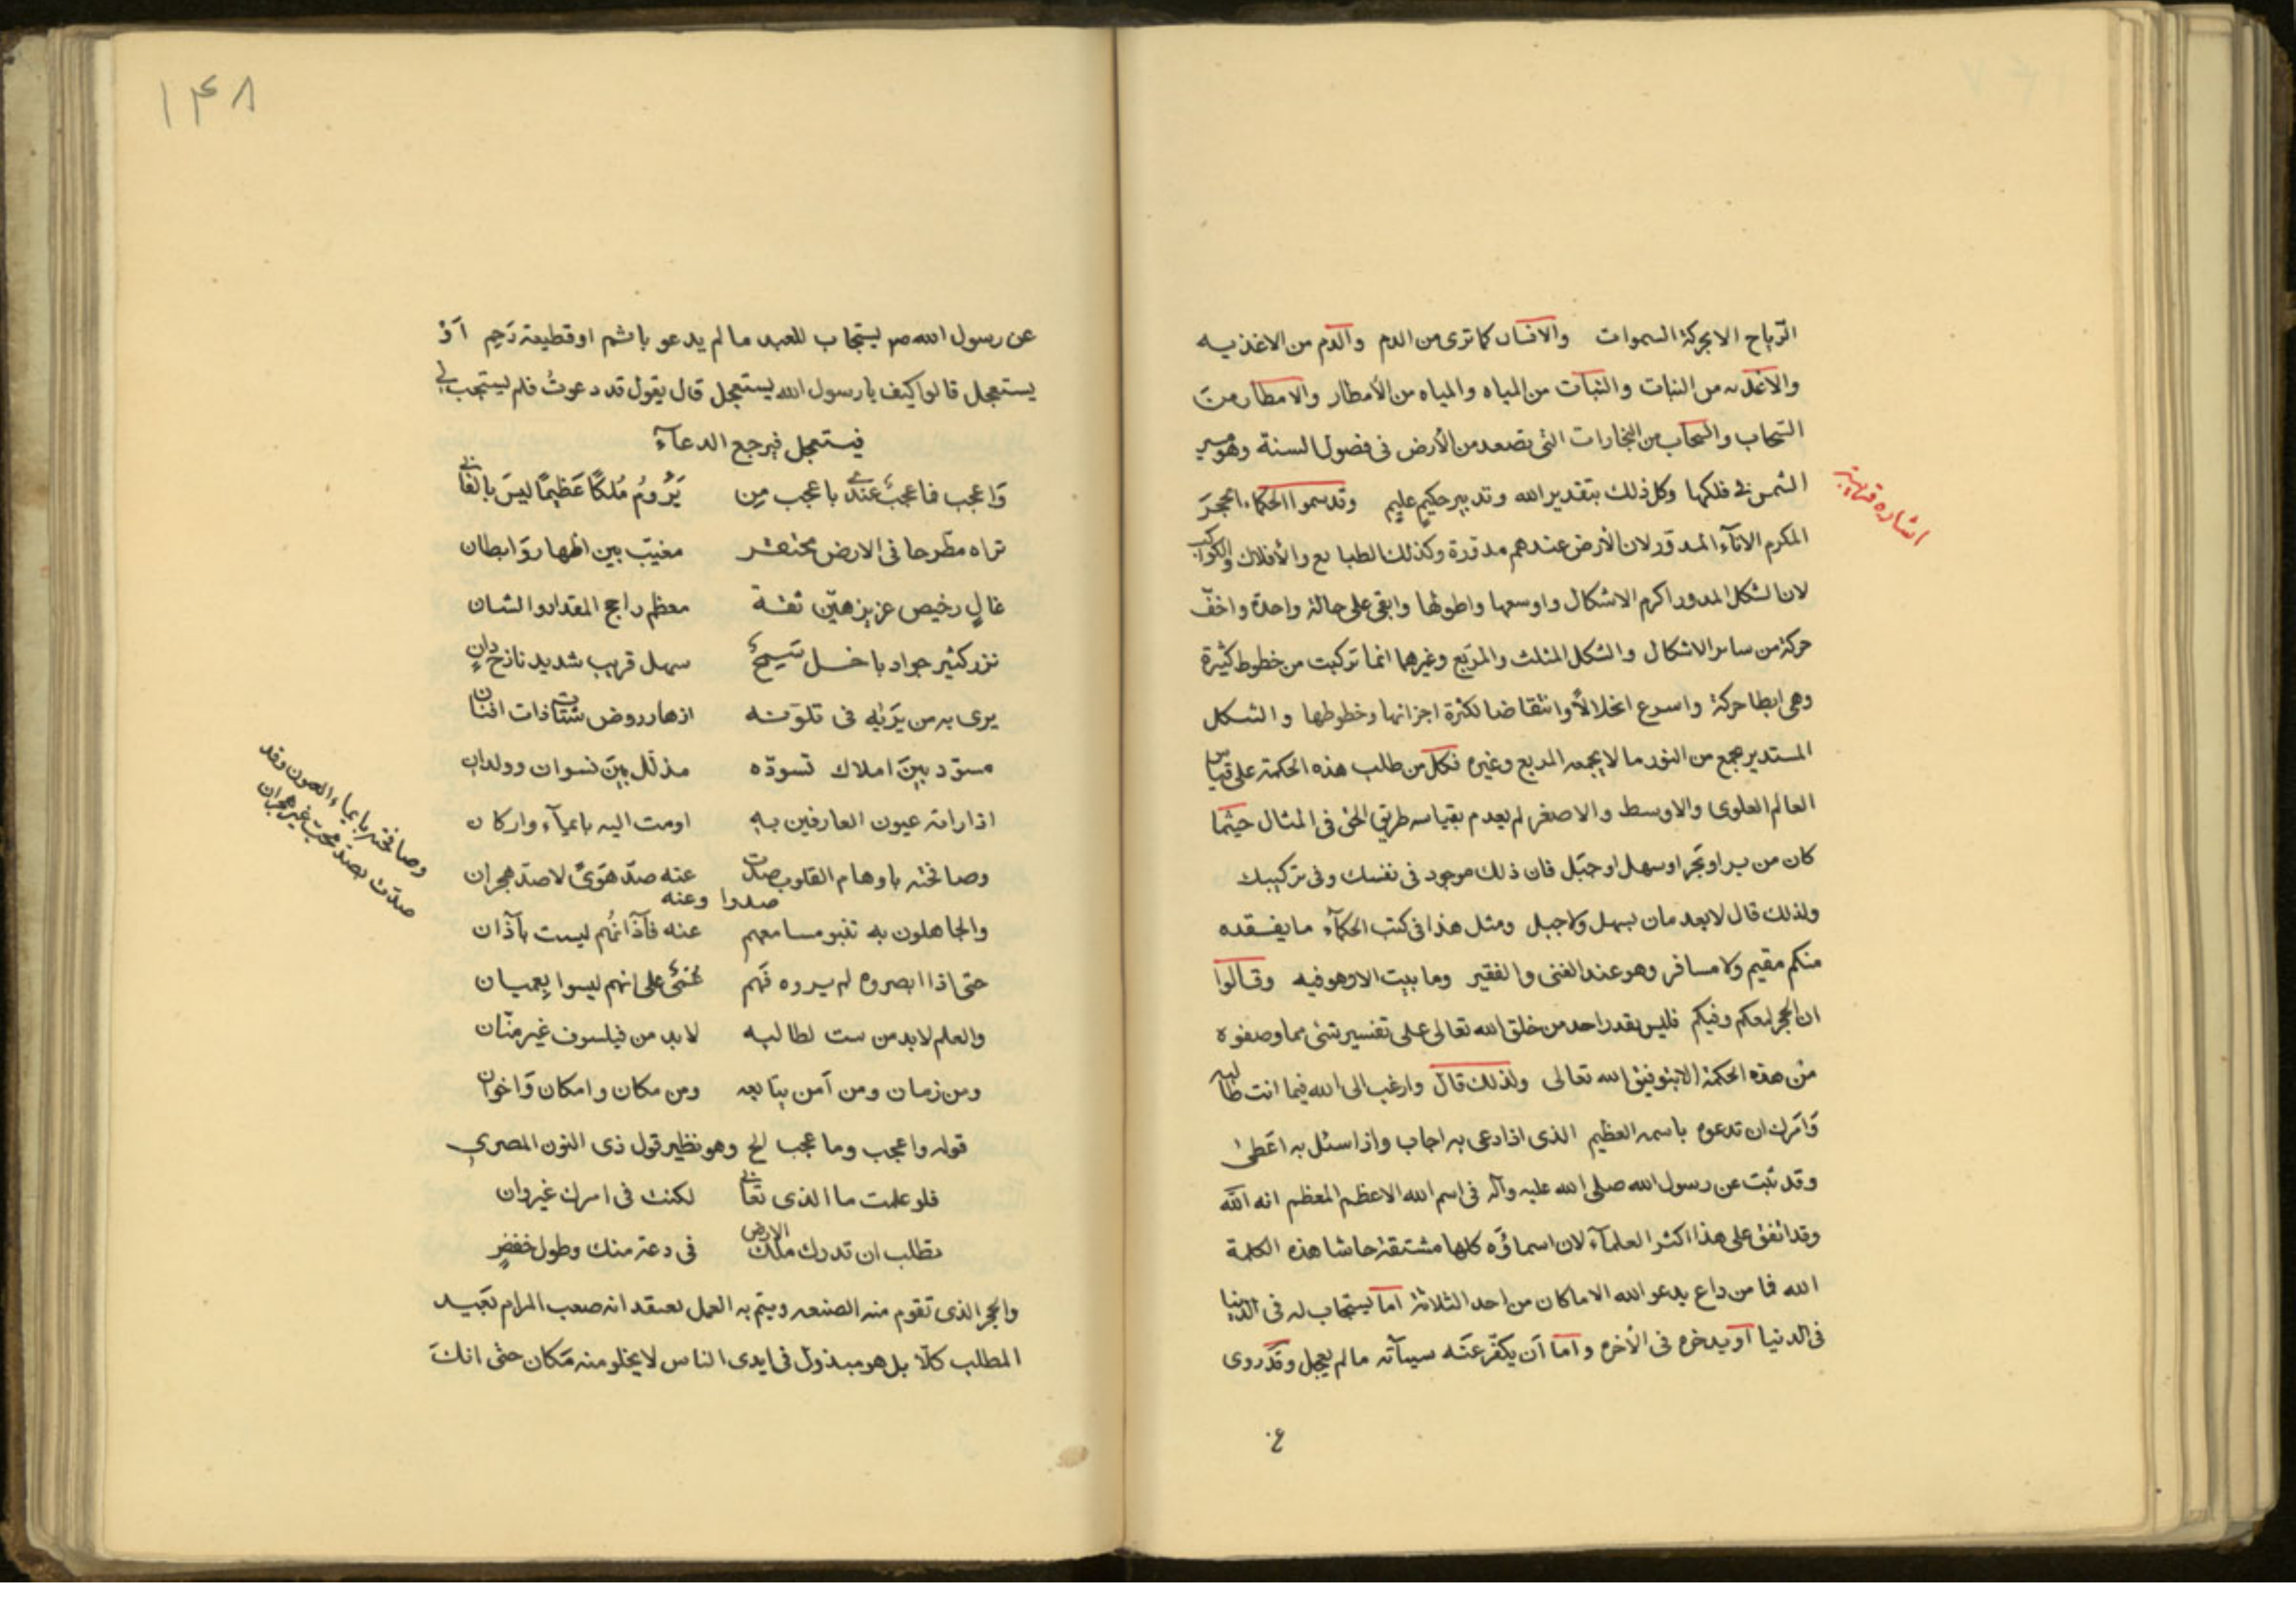 الرياح الا بحركة السموات والانسان كما ترى من الدم والدم من الاغذيه
والاغذيه من النبات والنبات من المياه والمياه من الأمطار والامطار من
السحاب والسحاب من البخارات التى تصعد من الأرض فى فصول السنة وهو مسير
الشمس فى فلكها وكل ذلك بتقدير الله وتدبير حكيم عليم وقد سموا الحكماء الحجر
اشاره
المكرم الاناء المدور لان الأرض عندهم مدورة وكذلك الطبايع والأفلاك والكواكب
لان الشكل المدور اكرم الاشكال واوسعها واطولها وابقى على حالة واحدة واخف
حركة من ساير الاشكال والشكل المثلث والمربع وغيرهما انما تركبت من خطوط كثيرة
وهى ابطا حركة واسرع انحلالاً وانتقاضا لكثرة اجزائها وخطوطها والشكل
المستدير يجمع من النور ما لا يجمعه المربع وغيره فكل من طلب هذه الحكمة على قياس
العالم العلوى والاوسط والاصغر لم يعدم بقياسه طريق الحق فى المثال حيثما
كان من بر او بحر او سهل او جبل فان ذلك موجود فى نفسك وفى تركيبك
ولذلك قال لا يعدمان بسهل ولا جبل ومثل هذا فى كتب الحكمآء ما يفقده
منكم مقيم ولا مسافر وهو عند الغنى والفقير وما بيت الا وهو فيه وقالوا
ان الحجر لمعكم وفيكم فليس يقدر احد من خلق الله تعالى على تفسير شئ مما وصفوه
من هذه الحكمة الا بتوفيق الله تعالى ولذلك قال وارغب الى الله فيما انت طالبه
وَامرك ان تدعوه باسمه العظيم الذى اذا دعى به اجاب واذا سئل به اعطى
وقد ثبت عن رسول الله صلى الله عليه وآله فى اسم الله الاعظم المعظم انه الله
وقد اتفق على هذا اكثر العلمآء لان اسماؤه كلها مشتقة حاشا هذه الكلمة
الله فما من داع يدعو الله الا ما كان من احد الثلاثة اما يستجاب له فى الدنيا
فى الدنيا او يدخره فى الأخره واما ان يكفر عنه سيئآته ما لم يعجل وقد روى
۱۴۸
عن رسول الله ص يستجاب للعبد ما لم يدعو باثم او قطيعة رَحِم اَوْ
يستعجل قالوا كيف يا رسول الله يستعجل قال يقول قد دعوتُ فلم يستجب لى
فيستعجل فيرجع الدعآء
وَاعجب فما عجبٌ عندى باعجب مِن يَرُومُ مُلكًا عَظِيمًا ليسَ بالفانى
تراه مطرحا فى الارض محتقر مغيّب بين اظهار وَابطان
غالٍ رخيص عزيز هيّن ثقة معظم راجح المقدار والشان
نزر كثير جواد باخل سَمِجٌ سهل قريب شديد نازح دانٍ
يرى به من يَرَيْهِ فى تلوّنه ازهار روض شتات ذات افنان
مسوّد بينَ املاك تسوّده مذلّل بينَ نسوان وولدان
اذا راته عيون العارفين به اومت اليه بايمآء واركان
وصافحته باوهام القلوب صدت عنه صدّ هَوَىً لا صدّ هجران
صدوا وعنه
وصافحته بايماء العيون وقد
صدّت بصدّ محب غير هجران
والجاهلون به تنبو مسامعهم عنه فآذانُهم ليست بآذان
حتى اذا ابصروه لم يروه فَهم عُمْىٌ على انهم ليسوا بِعميان
والعلم لابد من ست لطالبه لابد من فيلسوف غير منّان
ومن زمان ومن اَمن يتابعه ومن مكان وامكان وَاخوان
قوله واعجب وما عجب الخ وهو نظير قول ذى النون المصرى
فلو علمت ما الذى تعانى لكنت فى امرك غير وان
تطلب ان تدرك ملك الارض فى دعة منك وطول خفضٍ
والحجر الذى تقوم منه الصنعه ويتم به العمل لعتقد انه صعب المرام بَعيد
المطلب كلّا بل هو مبذول فى ايدى الناس لا يخلو منه مَكان حتى انكَ